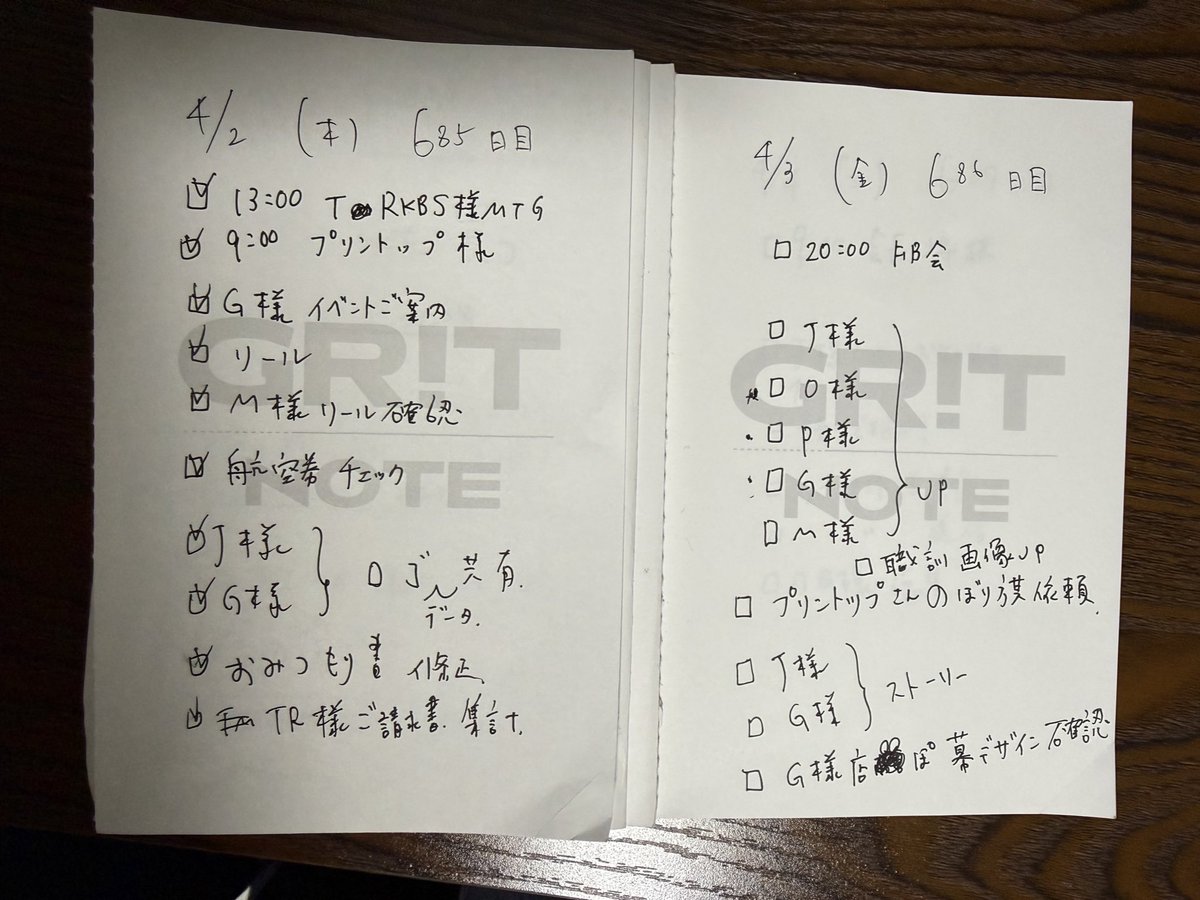 4/2 (木) 685日目
13:00 T RKBS様MTG
9:00 プリントップ様
G様 イベントご案内
リール
M様 リール確認
航空券 チェック
J様
G様
共有
データ
おみつもり書 修正
TR様ご請求書 集計
GR!T
NOTE
4/3 (金) 686日目
20:00 FB会
J様
O様
P様
G様
M様
UP
職訓 画像UP
プリントップさんのぼり旗依頼
J様
G様
ストーリー
G様店ぽ幕デザイン確認
GR!T
NOTE